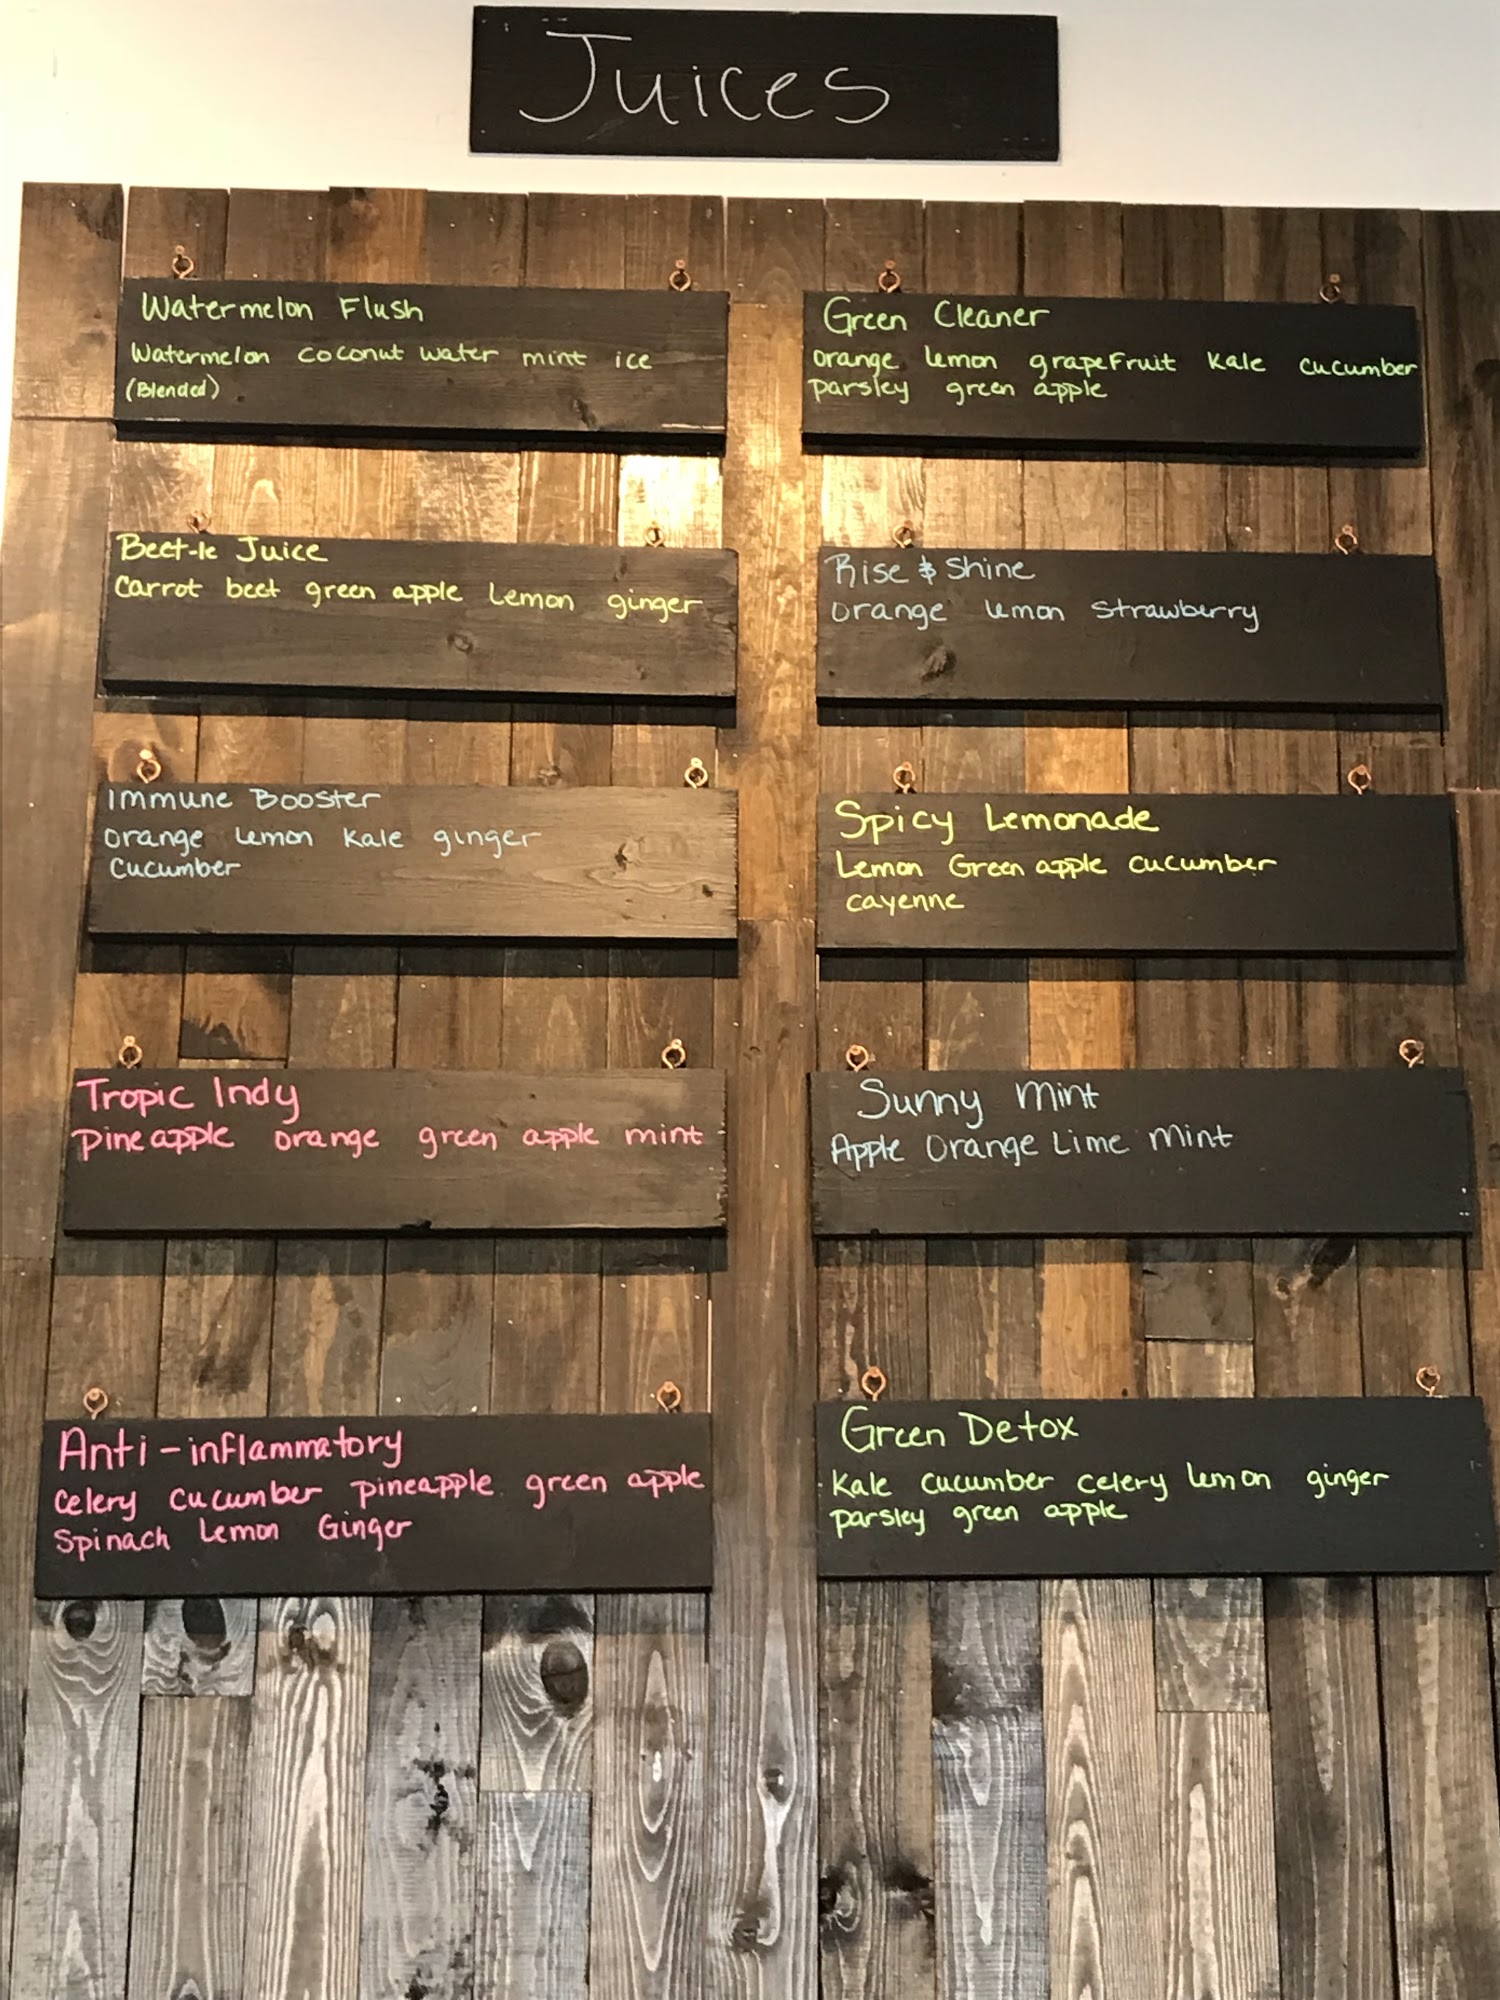 Juices
Watermelon Flush
Watermelon coconut water mint ice
(Blended)
Beet-le Juice
Carrot beet green apple Lemon ginger
Immune Booster
orange lemon kale ginger
cucumber
Tropic Indy
pineapple orange green apple mint
Anti-inflammatory
celery cucumber pineapple green apple
Spinach Lemon Ginger
Green Cleaner
orange lemon grapefruit kale cucumber
parsley green apple
Rise & Shine
orange lemon strawberry
Spicy Lemonade
Lemon Green apple cucumber
cayenne
Sunny Mint
Apple Orange Lime Mint
Green Detox
Kale cucumber celery lemon ginger
parsley green apple